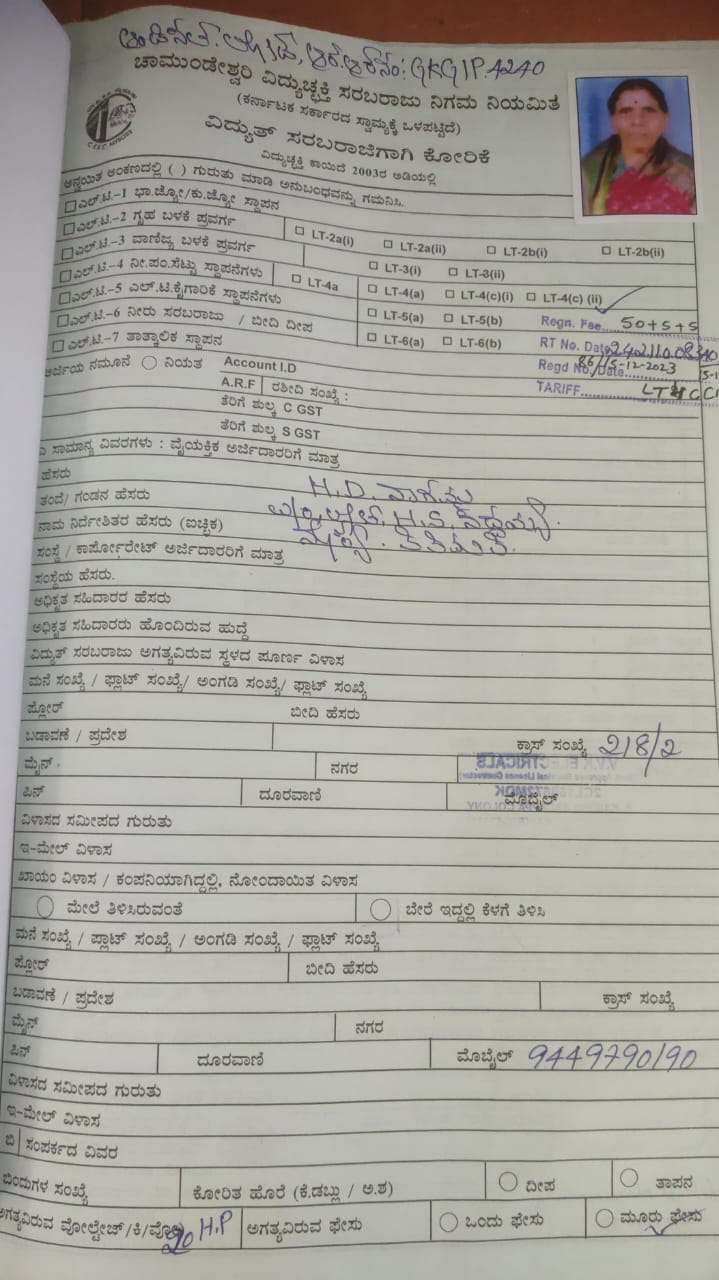 GKGIP.4240
ಚಾಮುಂಡೇಶ್ವರಿ ವಿದ್ಯುಚ್ಛಕ್ತಿ ಸರಬರಾಜು ನಿಗಮ ನಿಯಮಿತ
(ಕರ್ನಾಟಕ ಸರ್ಕಾರದ ಸ್ವಾಮ್ಯಕ್ಕೆ ಒಳಪಟ್ಟಿದೆ)
ವಿದ್ಯುತ್ ಸರಬರಾಜಿಗಾಗಿ ಕೋರಿಕೆ
ವಿದ್ಯುಚ್ಛಕ್ತಿ ಕಾಯಿದೆ 2003ರ ಅಡಿಯಲ್ಲಿ
ಅನ್ವಯಿತ ಅಂಕಣದಲ್ಲಿ ( ) ಗುರುತು ಮಾಡಿ ಅನುಬಂಧವನ್ನು ಗಮನಿಸಿ.
ಎಲ್.ಟಿ.–1 ಭಾ.ಜ್ಯೋ/ಕು.ಜ್ಯೋ ಸ್ಥಾಪನ
ಎಲ್.ಟಿ.–2 ಗೃಹ ಬಳಕೆ ಪ್ರವರ್ಗ LT-2a(i) LT-2a(ii) LT-2b(i) LT-2b(ii)
ಎಲ್.ಟಿ.–3 ವಾಣಿಜ್ಯ ಬಳಕೆ ಪ್ರವರ್ಗ LT-3(i) LT-3(ii)
ಎಲ್.ಟಿ.–4 ನೀ.ಪಂ.ಸೆಟ್ಟು ಸ್ಥಾಪನೆಗಳು LT-4a LT-4(a) LT-4(c)(i) LT-4(c) (ii)
ಎಲ್.ಟಿ.–5 ಎಲ್.ಟಿ.ಕೈಗಾರಿಕೆ ಸ್ಥಾಪನೆಗಳು LT-5(a) LT-5(b) Regn. Fee 50+5+5
ಎಲ್.ಟಿ.–6 ನೀರು ಸರಬರಾಜು / ಬೀದಿ ದೀಪ LT-6(a) LT-6(b) RT No. Date
ಎಲ್.ಟಿ.–7 ತಾತ್ಕಾಲಿಕ ಸ್ಥಾಪನ Regd No./Date 15-12-2023
ಅರ್ಜಿಯ ನಮೂನೆ ನಿಯತ Account I.D TARIFF
A.R.F ರಶೀದಿ ಸಂಖ್ಯೆ :
ತೆರಿಗೆ ಶುಲ್ಕ C GST
ತೆರಿಗೆ ಶುಲ್ಕ S GST
ಸಾಮಾನ್ಯ ವಿವರಗಳು : ವೈಯಕ್ತಿಕ ಅರ್ಜಿದಾರರಿಗೆ ಮಾತ್ರ
ಹೆಸರು H.D.
ತಂದೆ/ ಗಂಡನ ಹೆಸರು H.S.
ನಾಮ ನಿರ್ದೇಶಿತರ ಹೆಸರು (ಐಚ್ಛಿಕ)
ಸಂಸ್ಥೆ / ಕಾರ್ಪೋರೇಟ್ ಅರ್ಜಿದಾರರಿಗೆ ಮಾತ್ರ
ಸಂಸ್ಥೆಯ ಹೆಸರು.
ಅಧಿಕೃತ ಸಹಿದಾರರ ಹೆಸರು
ಅಧಿಕೃತ ಸಹಿದಾರರು ಹೊಂದಿರುವ ಹುದ್ದೆ
ವಿದ್ಯುತ್ ಸರಬರಾಜು ಅಗತ್ಯವಿರುವ ಸ್ಥಳದ ಪೂರ್ಣ ವಿಳಾಸ
ಮನೆ ಸಂಖ್ಯೆ / ಫ್ಲಾಟ್ ಸಂಖ್ಯೆ/ ಅಂಗಡಿ ಸಂಖ್ಯೆ/ ಫ್ಲಾಟ್ ಸಂಖ್ಯೆ
ಫ್ಲೋರ್ ಬೀದಿ ಹೆಸರು
ಬಡಾವಣೆ / ಪ್ರದೇಶ ಕ್ರಾಸ್ ಸಂಖ್ಯೆ 218/2
ಮೈನ್ ನಗರ
ಪಿನ್ ದೂರವಾಣಿ ಮೊಬೈಲ್
ವಿಳಾಸದ ಸಮೀಪದ ಗುರುತು
ಇ–ಮೇಲ್ ವಿಳಾಸ
ಖಾಯಂ ವಿಳಾಸ / ಕಂಪನಿಯಾಗಿದ್ದಲ್ಲಿ, ನೋಂದಾಯಿತ ವಿಳಾಸ
ಮೇಲೆ ತಿಳಿಸಿರುವಂತೆ ಬೇರೆ ಇದ್ದಲ್ಲಿ ಕೆಳಗೆ ತಿಳಿಸಿ
ಮನೆ ಸಂಖ್ಯೆ / ಪ್ಲಾಟ್ ಸಂಖ್ಯೆ / ಅಂಗಡಿ ಸಂಖ್ಯೆ / ಫ್ಲಾಟ್ ಸಂಖ್ಯೆ
ಫ್ಲೋರ್ ಬೀದಿ ಹೆಸರು
ಬಡಾವಣೆ / ಪ್ರದೇಶ ಕ್ರಾಸ್ ಸಂಖ್ಯೆ
ಮೈನ್ ನಗರ
ಪಿನ್ ದೂರವಾಣಿ ಮೊಬೈಲ್ 9449790190
ವಿಳಾಸದ ಸಮೀಪದ ಗುರುತು
ಇ–ಮೇಲ್ ವಿಳಾಸ
ಬಿ ಸಂಪರ್ಕದ ವಿವರ
ಬಿಂದುಗಳ ಸಂಖ್ಯೆ ಕೋರಿತ ಹೊರೆ (ಕೆ.ಡಬ್ಲು / ಅ.ಶ) ದೀಪ ತಾಪನ
ಅಗತ್ಯವಿರುವ ವೋಲ್ಟೇಜ್/ಕಿ/ H.P ಅಗತ್ಯವಿರುವ ಫೇಸು ಒಂದು ಫೇಸು ಮೂರು ಫೇಸು